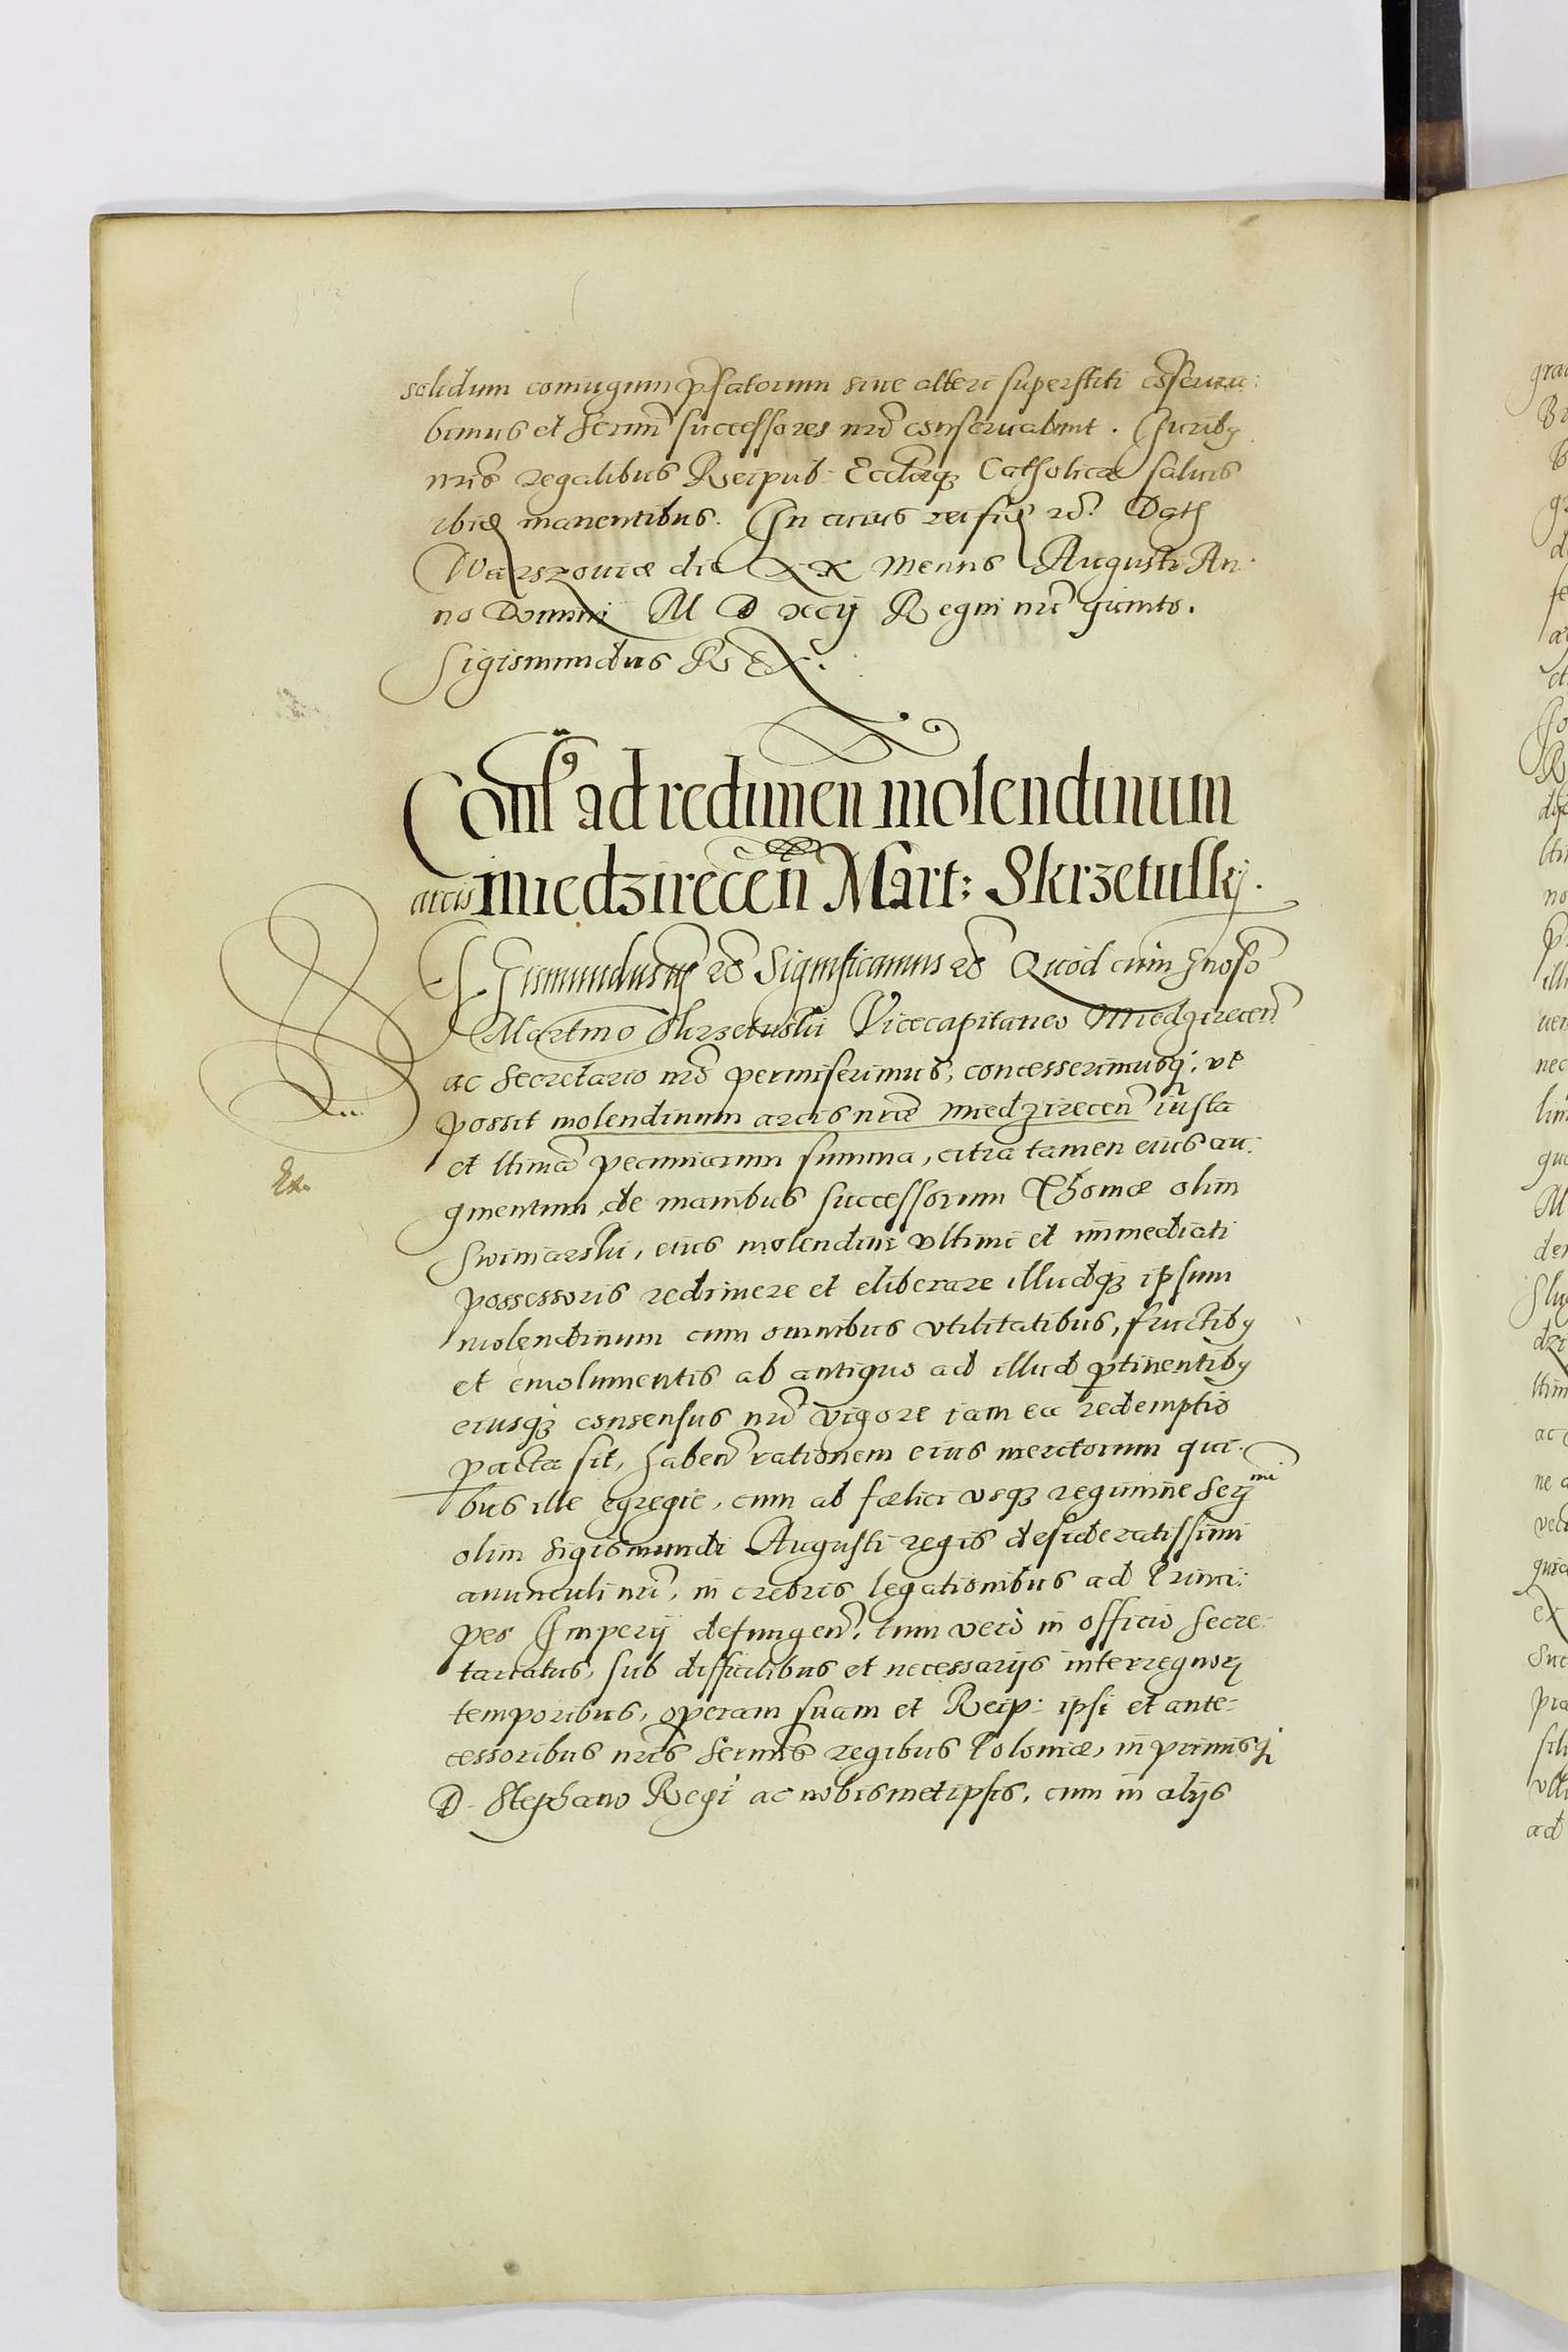 solidum coniugum p̃fatorum siue alteri superstiti cõserua:
bimus et Sermi successores nrĩ conseruabunt. Iuribꝫ
nris̃ regalibus Reipub: Eccl̃ieqꝫ Catholicæ saluis
ibidẽ manentibus. In cuius rei fidẽ ec̃. Dat̃
Warszouiæ die XX Mensis Augusti An:
no Domini M D xcij Regni nrĩ quinto.
Sigismundus REX.
Cons̃ ad redimen̄ molendinum
arcis miedzirecen̄ Mart: Skrzetuskj.
Sigismundus tertius ec̃ Significamus ec̃ Quod cum gnõso
Martino Skrzetuski Vicecapitaneo Miedzirecen̄
ac Secretario nrõ permiserimus, concesserimusqꝫ, vt
possit molendinum arcis nrãe miedzirecen̄ iusta
et ltima pecuniarum summa, citra tamen eius au:
gmentum, de manibus successorum Thomæ olim
Swiniarski, eius molendini vltimi et immediati
possessoris redimere et eliberare illudqꝫ ipsum
molendinum cum omnibus vtilitatibus, fructibꝫ
et emolumentis ab antiquo ad illud ꝑtinentibꝫ
eiusqꝫ consensus nrĩ vigore iam ea redemptio
facta sit, haben̄ rationem eius meritorum qui:
bus ille egregie, cum ab fælici vsqꝫ regimine Serͫⁱ
olim Sigismundi Augusti regis desideratissimi
auunculi nrĩ, in crebris legationibus ad Princi:
pes Imperij defungen̄, tum verò in officio Secre:
tariatus, sub difficilibus et necessarijs interregnorꝫ
temporibus, operam suam et Reip: ipsi et ante-
cessoribus nris̃ Sermis̃ regibus Poloniæ, in primisqꝫ
D. Stephano Regi ac nobismetipsis, cum in alijs